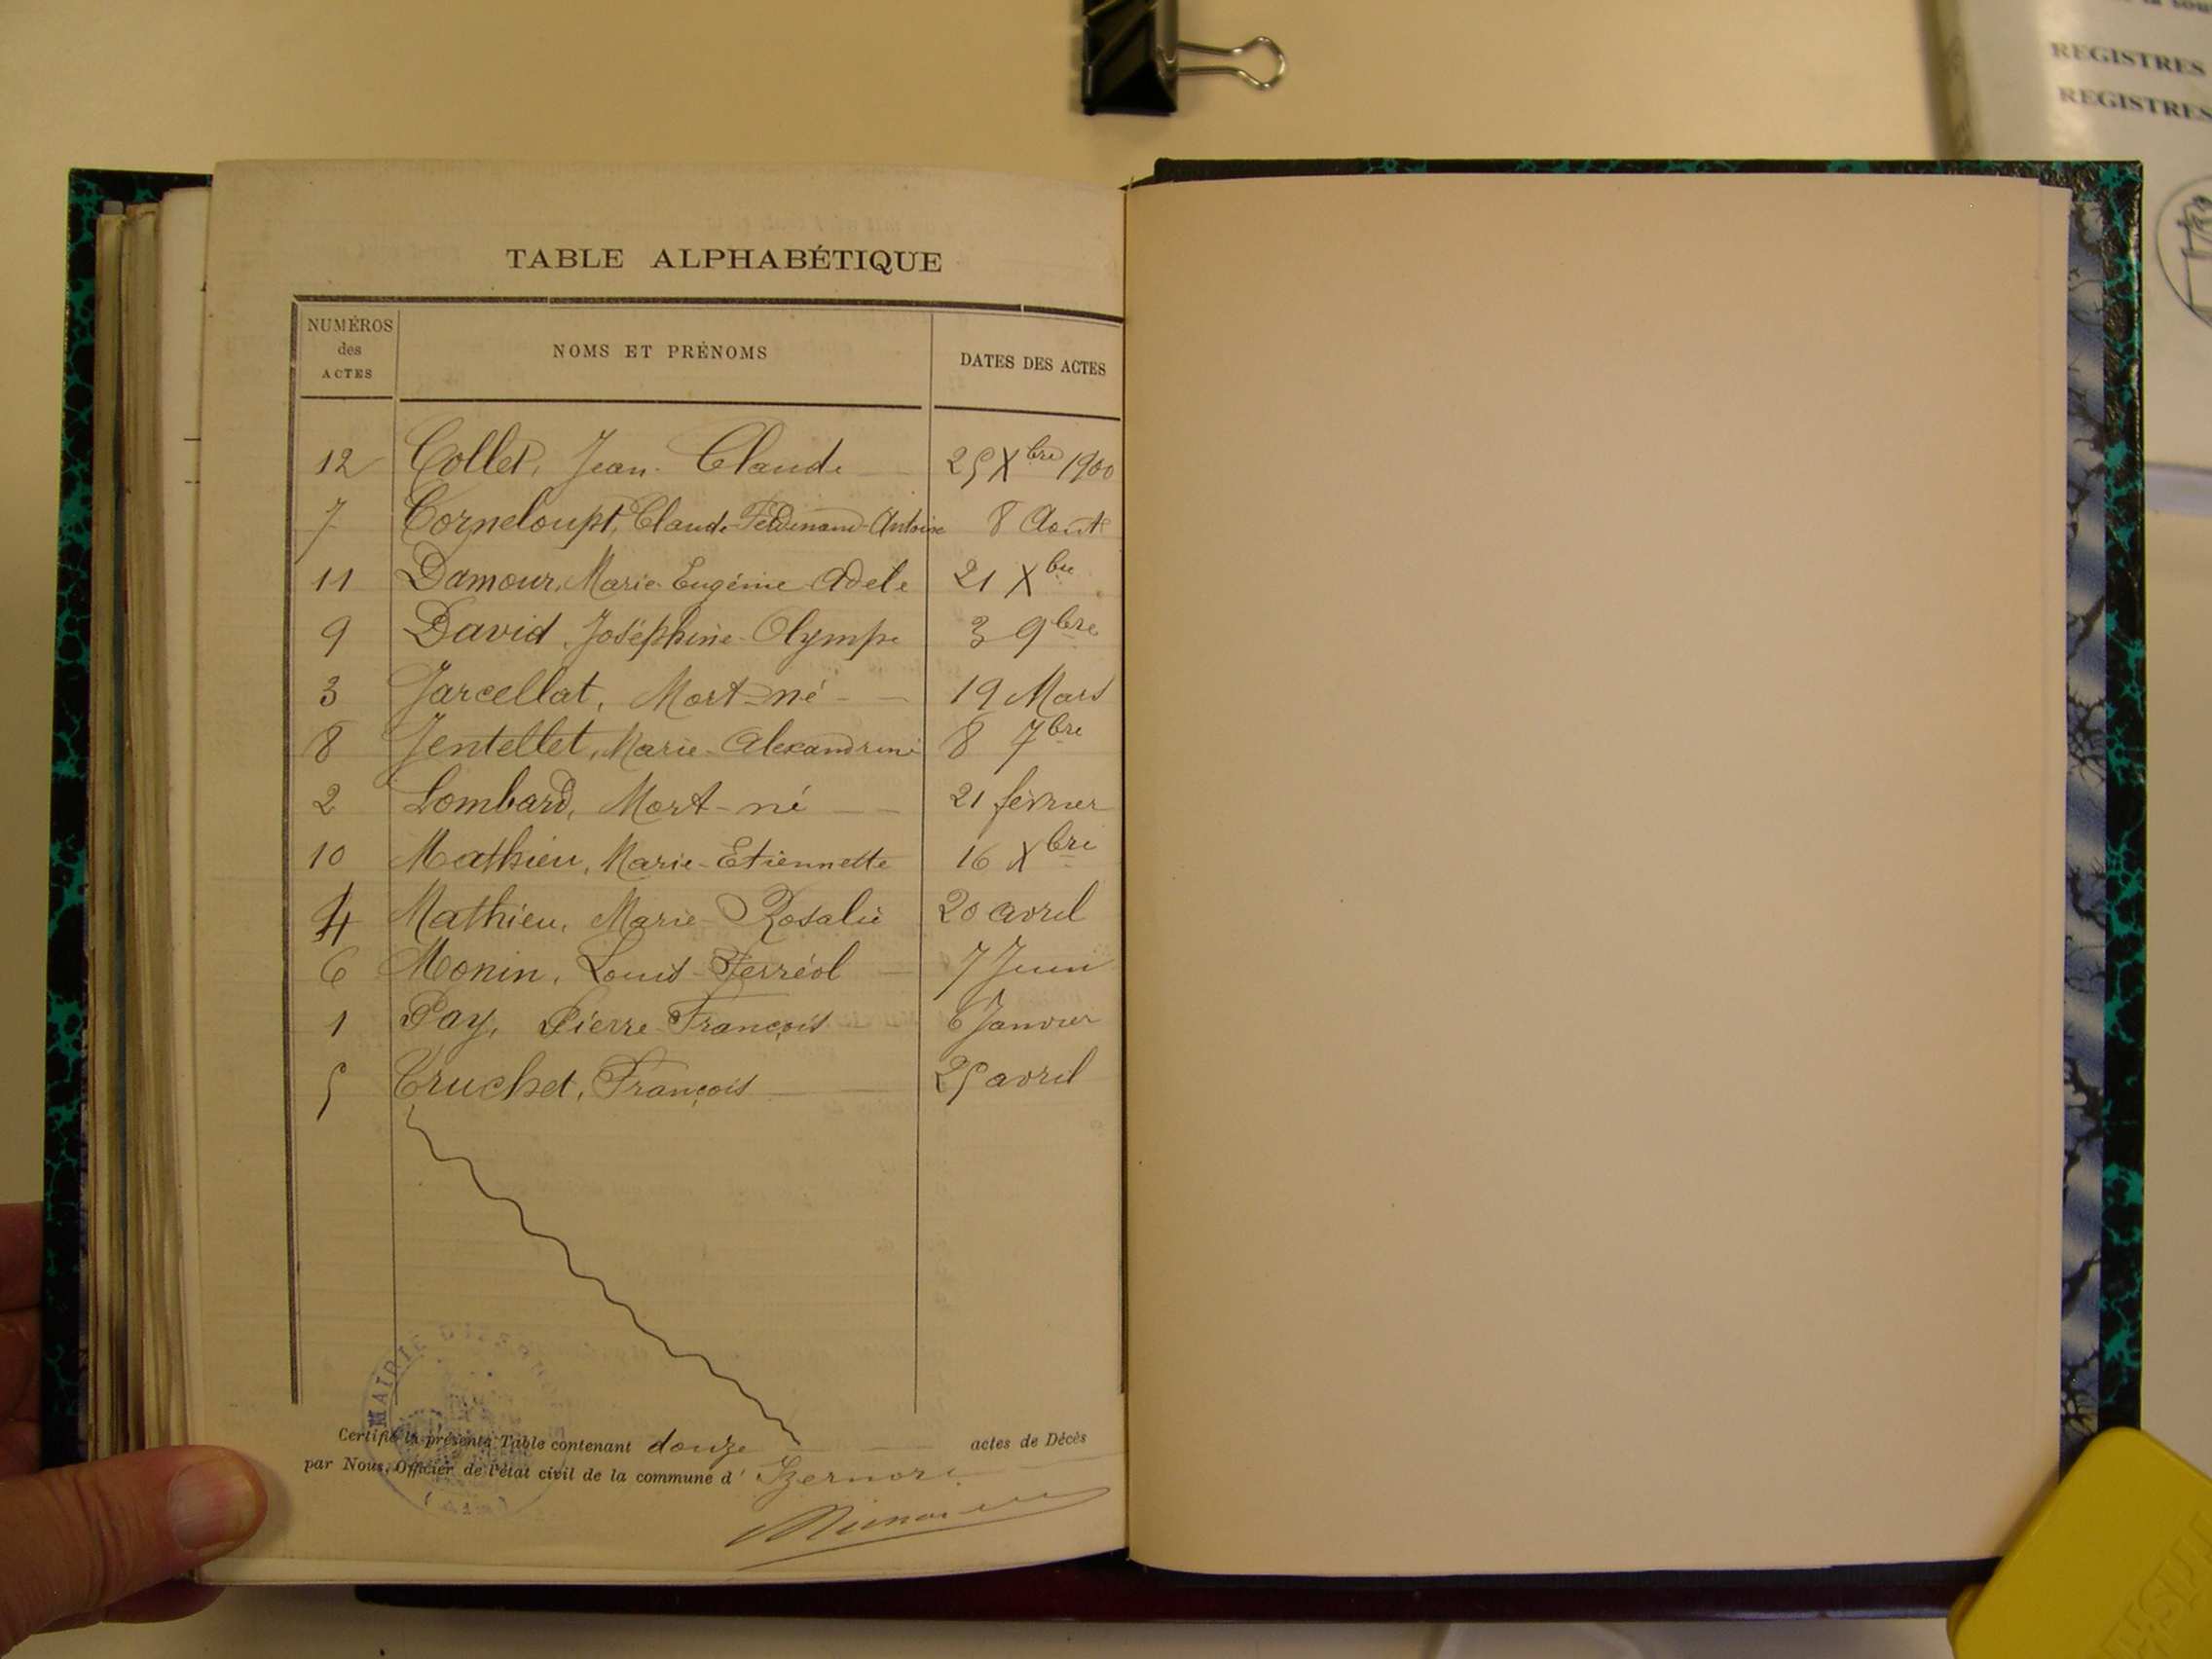 REGISTRES
REGISTRES
TABLE ALPHABÉTIQUE
NUMÉROS des ACTES NOMS ET PRÉNOMS DATES DES ACTES
12 Collet, Jean-Claude 25 Xbre 1900
7 Corneloupt, Claude-Ferdinand-Antoine 8 Août
11 Damour, Marie-Eugénie-Adèle 21 Xbre
9 David, Joséphine-Olympe 3 9bre
3 Jarcellat, Mort-né 19 Mars
8 Jentellet, Marie-Alexandrine 8 7bre
2 Lombard, Mort-né 21 février
10 Mathieu, Marie-Etiennette 16 Xbre
4 Mathieu, Marie-Rosalie 20 avril
6 Monin, Louis-Ferréol 7 Juin
1 Pay, Pierre-François 6 Janvier
5 Truchet, François 25 avril
Certifié la présente Table contenant douze actes de Décès
par Nous, Officier de l'état civil de la commune d' Izernore
MAIRIE